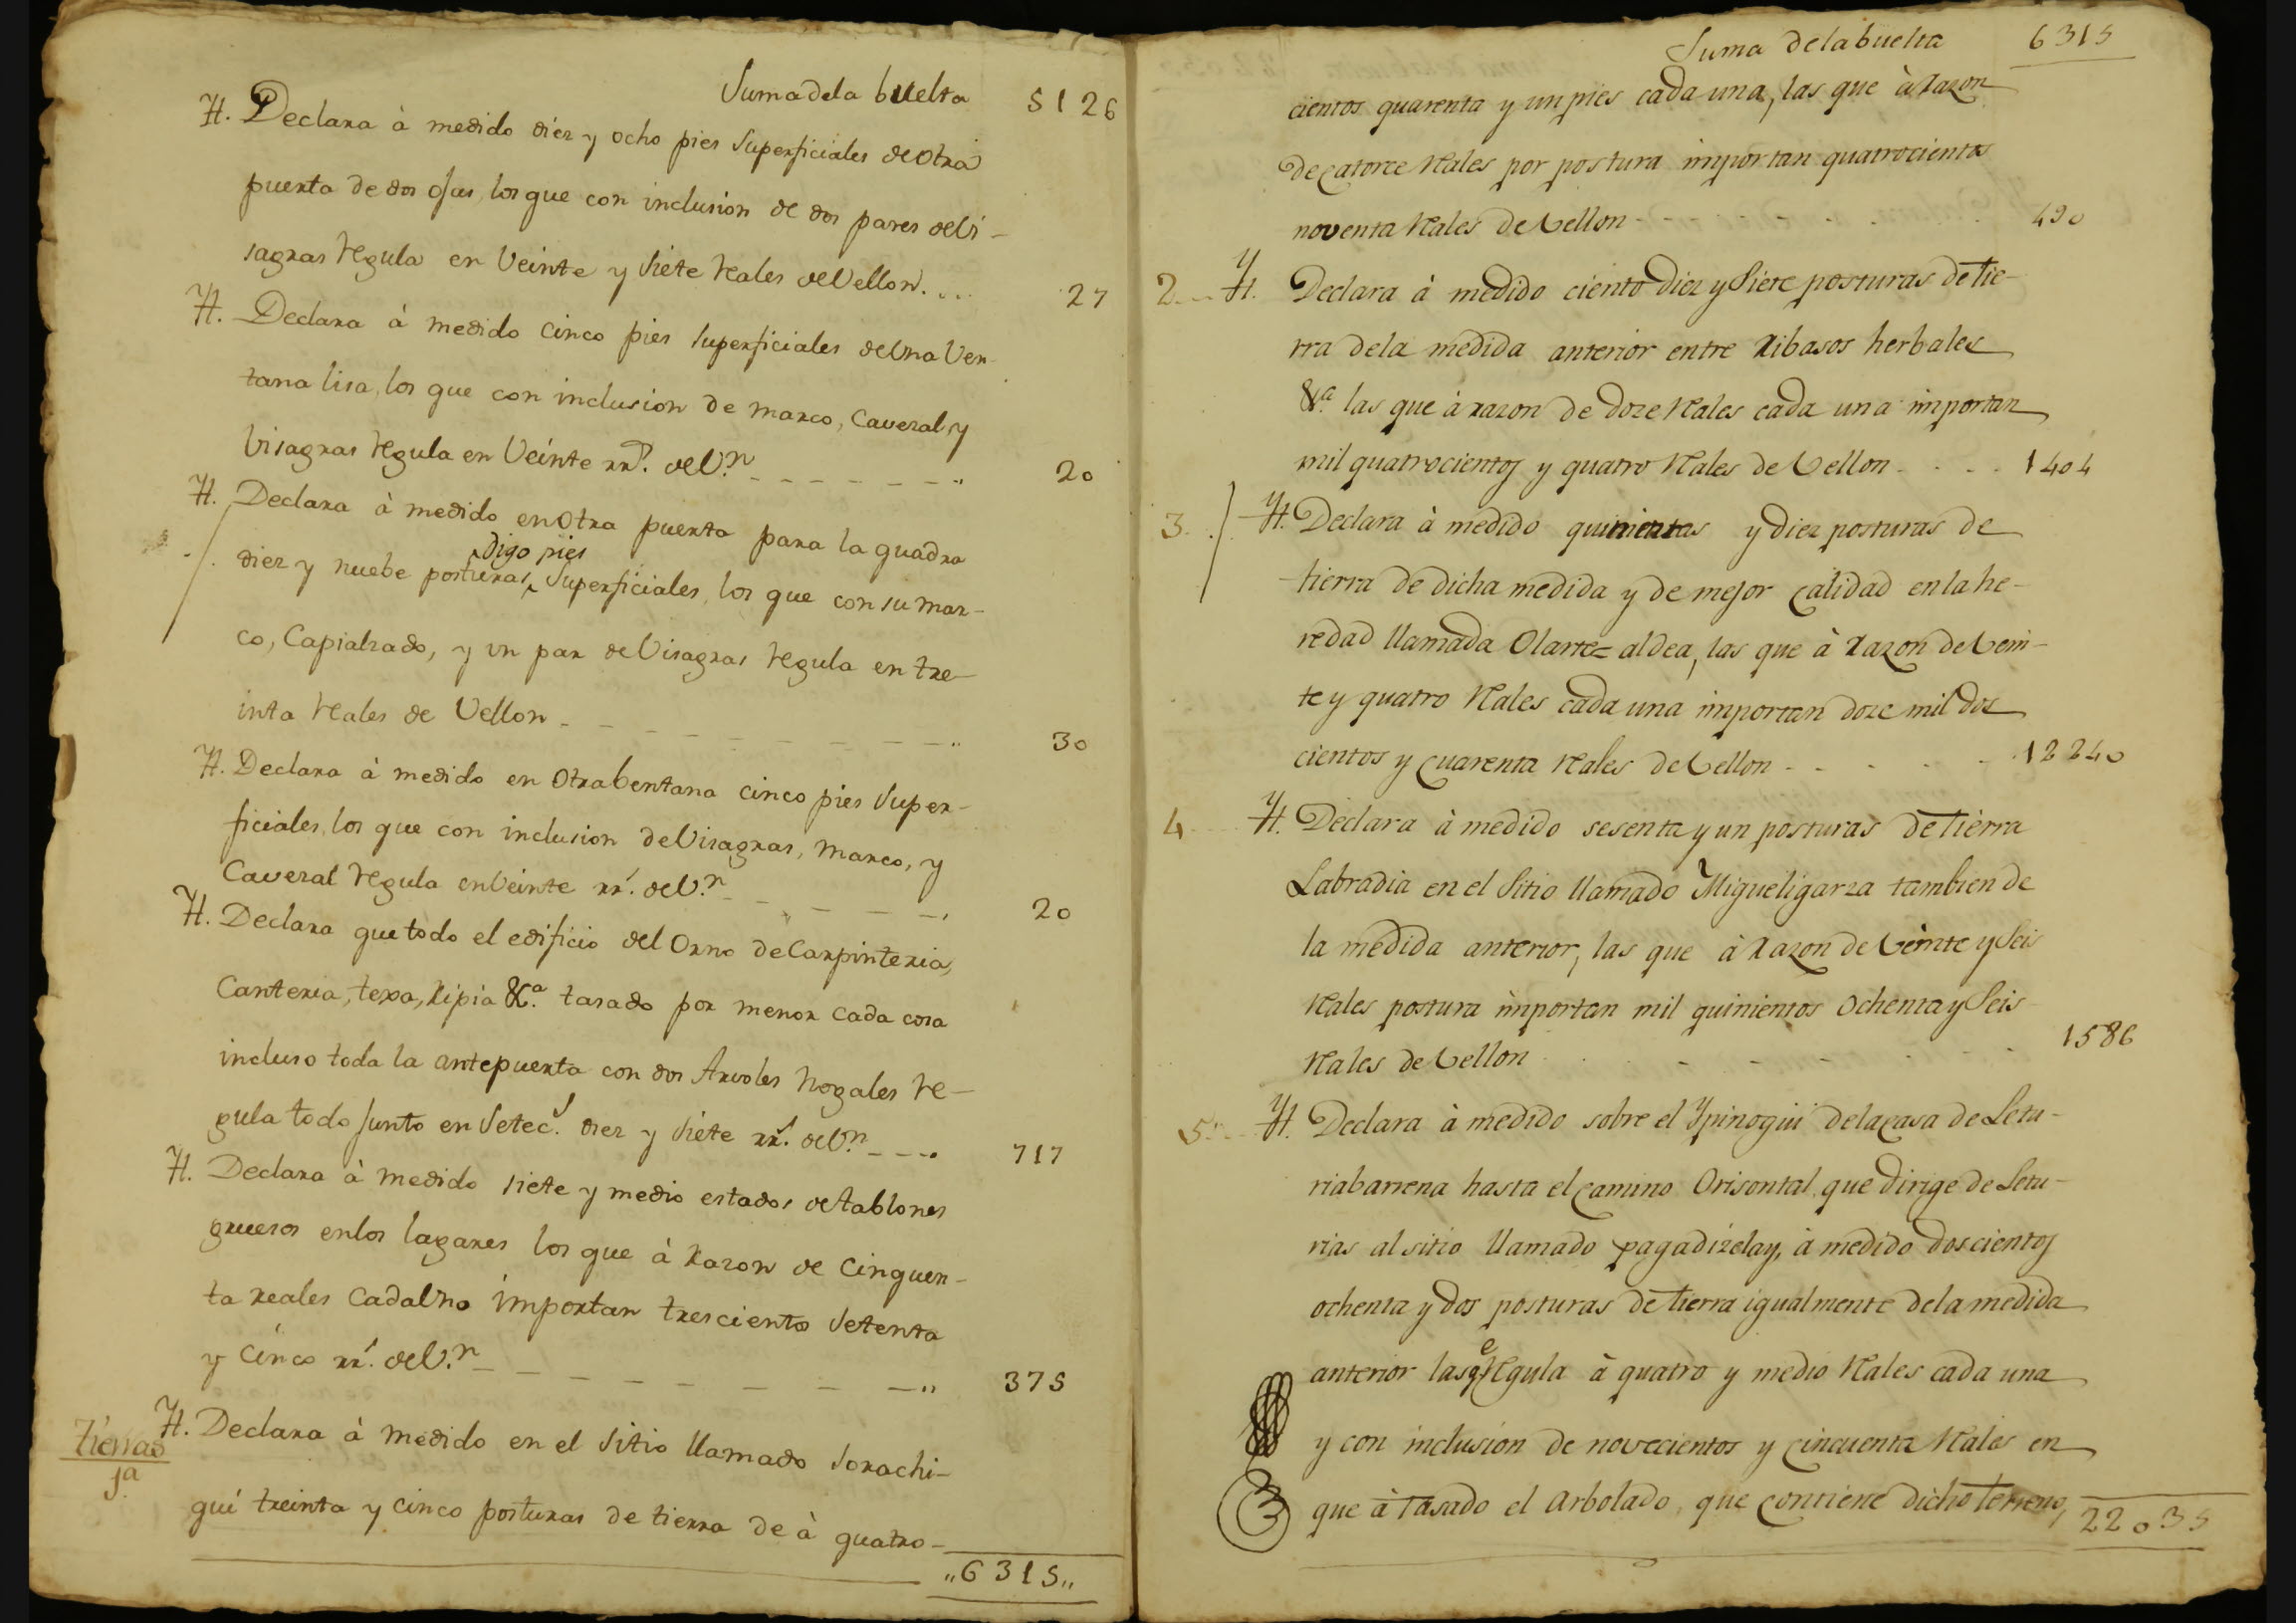 Suma dela buelta 5126
Yt. Declara à medido diez y ocho pies Superficiales de Otra
puerta de dos ojas, los que con inclusion de dos pares de Vi-
sagras regula en Veinte y Siete reales de Vellon. . . . 27
Yt. Declara à medido Cinco pies Superficiales de Una Ven-
tana lisa, los que con inclusion de marco, Caveral, y
Visagras regula en Veinte rr.ˢ de V.ⁿ 20
Yt. Declara à medido en Otra puerta para la quadra
diez y nuebe posturas, digo pies Superficiales, los que con su mar-
co, Capialzado, y un par de Visagras regula en tre-
inta reales de Vellon 30
Yt. Declara à medido en Otra bentana cinco pies Super-
ficiales, los que con inclusion de Visagras, marco, y
Caveral regula en Veinte rr.ˢ de V.ⁿ 20
Yt. Declara que todo el edificio del Orno de Carpinteria,
Canteria, texa, Ripia &.ᵃ tasado por menor cada cosa
incluso toda la antepuerta con dos Arvoles Nogales re-
gula todo Junto en Setec.ˢ diez y Siete rr.ˢ de V.ⁿ 717
Yt. Declara à medido siete y medio estados de tablones
gruesos en los lagares los que à razon de Cinquen-
ta reales Cada Uno importan trescientos Setenta
y Cinco rr.ˢ de V.ⁿ 375
Tierras
1ª
Yt. Declara à medido en el Sitio llamado Sorachi-
gui treinta y cinco posturas de tierra de à quatro-
,,6315,,
Suma dela buelta 6315
cientos quarenta y un pies cada una, las que à razon
de catorce Rales por postura importan quatrocientos
noventa Rales de Vellon 490
2 Yt. Declara à medido ciento diez y Siete posturas de tie-
rra dela medida anterior entre Ribasos herbales
&.ᵃ las que à razon de doze Rales cada una importan
mil quatrocientos y quatro Rales de Vellon . . . . 1404
3. Yt. Declara à medido quinientas y diez posturas de
tierra de dicha medida y de mejor calidad en la he-
redad llamada Olarte= aldea, las que à Razon de Vein-
te y quatro Rales cada una importan doze mil dos
cientos y cuarenta Rales de Vellon 12240
4 Yt. Declara à medido sesenta y un posturas de tierra
Labradia en el Sitio llamado Migueligarza tambien de
la medida anterior, las que à Razon de Veinte y Seis
Rales postura importan mil quinientos Ochenta y Seis
Rales de Vellon 1586
5 Yt. Declara à medido sobre el Ypinogui dela casa de Letu-
riabarrena hasta el camino Orisontal que dirige de Letu-
rias al sitio llamado pagadizelay, à medido doscientos
ochenta y dos posturas de tierra igualmente dela medida
anterior las q.ᵉ Regula à quatro y medio Rales cada una
y con inclusion de novecientos y cincuenta Rales en
que à tasado el Arbolado, que contiene dicho terreno,
22035